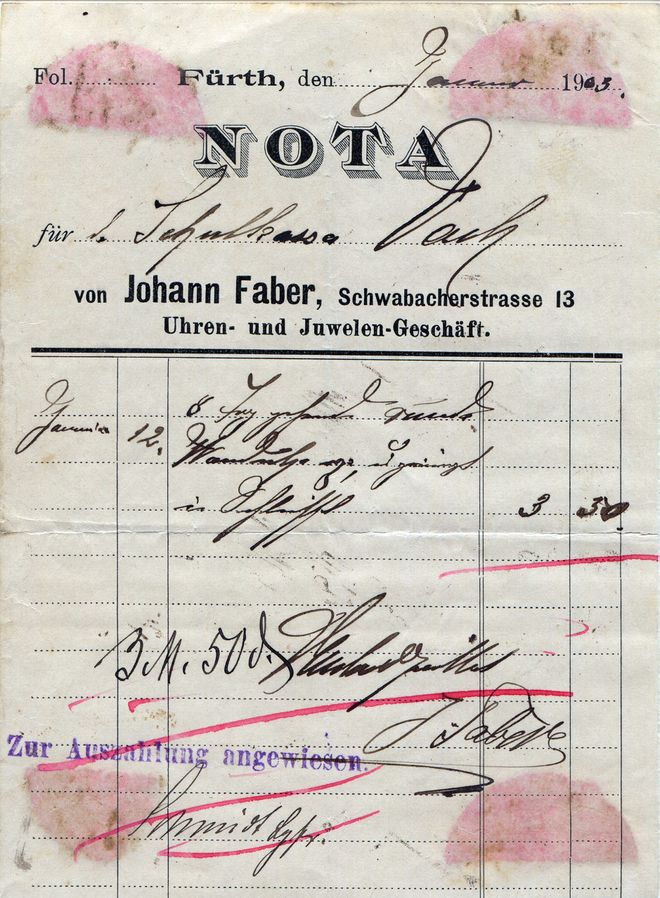 Fol. Fürth, den Januar 1903.
NOTA
für d. Schulkassa Vach
von Johann Faber, Schwabacherstrasse 13
Uhren- und Juwelen-Geschäft.
Januar 12. 8 Tag gehende runde
in 3 50.
3 M. 50 d.
J. Faber
Zur Auszahlung angewiesen.
Schmidt